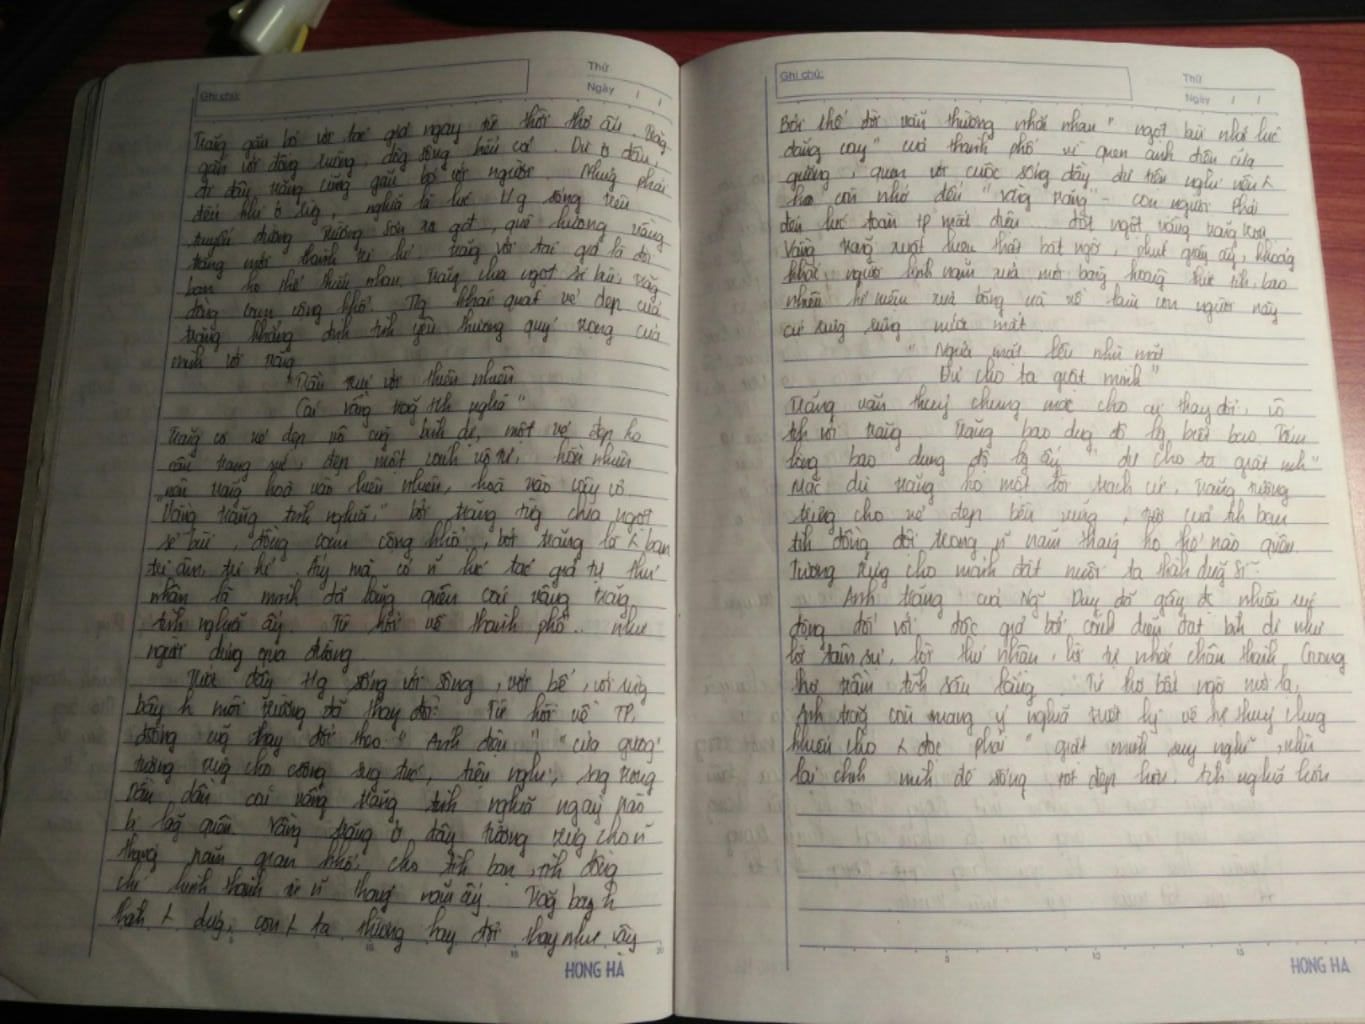 Thứ
Ngày
Ghi chú:
Trăng gắn bó với tác giả ngay từ thời thơ ấu. Trăng
gắn với đồng ruộng, dòng sông hồi cơi. Dù ở đâu,
đi đâu, trăng cũng gắn bó với người. Nhưng phải
đến khi ở rừng, nghĩa là lúc sống trên
tuyến đường Trường Sơn xa quê hương vầng
trăng mới thành tri kỉ. Trăng với tác giả là đôi
bạn ko thể thiếu nhau. Trăng chia ngọt sẻ bùi, trăng
đồng cam cộng khổ. Tg khái quát vẻ đẹp của
trăng khẳng định tình yêu thương quý trọng của
mình với trăng
"Trần trụi với thiên nhiên
Cái vầng trăng tình nghĩa"
Trăng có vẻ đẹp vô cùng bình dị, một vẻ đẹp ko
cần trang sức, đẹp một cách vô tư, hồn nhiên
nên trăng hoà vào thiên nhiên, hoà vào cây cỏ.
"Vầng trăng tình nghĩa" bởi trăng từng chia ngọt
sẻ bùi, đồng cam cộng khổ, bởi trăng là bạn
tri âm, tri kỉ. Ấy mà có lúc tác giả tự thú
nhận là mình đã lãng quên cái vầng trăng
tình nghĩa ấy. "Từ hồi về thành phố... như
người dưng qua đường
Trước đây tg sống với sông, với bể, với rừng
bây h môi trường đã thay đổi. Từ hồi về TP,
cũng thay đổi theo "Ánh điện" "cửa gương"
tượng trưng cho cuộc sống tiện nghi,
dần cái vầng trăng tình nghĩa ngày nào
bị lãng quên. Vầng trăng ở đây tượng trưng cho
tháng năm gian khổ, cho tình bạn, tình đồng
chí hình thành từ tháng năm ấy. Trăng bây h
thành dưng, con ta thường hay đổi thay như vậy
HONG HÀ
Ghi chú:
Thứ
Ngày
Bởi thế đời vẫn thường nhắc nhau "ngọt bùi nhớ lúc
đắng cay" của thành phố vì quen ánh điện cửa
gương, quen với cuộc sống đầy đủ tiện nghi nên
ko còn nhớ đến "vầng trăng" - con người phải
đến lúc toàn tp mất điện... đột ngột vầng trăng tròn
Vầng trăng xuất hiện thật bất ngờ, phút giây ấy, khoảng
khắc, người lính năm xưa mới bàng hoàng thức tỉnh, bao
nhiêu kỉ niệm xưa bỗng ùa về làm con người này
cứ rưng rưng nước mắt
"Ngửa mặt lên nhìn mặt
Đủ cho ta giật mình"
Trăng vẫn thuỷ chung mặc cho ai thay đổi, vô
tình với trăng Trăng bao dung độ lg biết bao. Tấm
lòng bao dung độ lg ấy "đủ cho ta giật mình"
Mặc dù trăng ko một lời trách cứ. Trăng tượng
trưng cho vẻ đẹp bền vững, của tình bạn
tình đồng đội trong năm tháng ko thể nào quên.
Tượng trưng cho mảnh đất nuôi ta thành dũng sĩ.
Ánh trăng của Ng Duy đã gây nhiều xúc
động đối với độc giả bởi cách diễn đạt bình dị như
lời tâm sự, lời thú nhận, lời tự nhắc chân thành. Giọng
thơ trầm tĩnh sâu lắng. Tứ thơ bất ngờ mới lạ,
Ánh trăng còn mang ý nghĩa triết lý về sự thuỷ chung
khiến cho đọc phải "giật mình" suy nghĩ, nhìn
lại chính mình để sống tốt đẹp hơn, tình nghĩa hơn
HONG HA